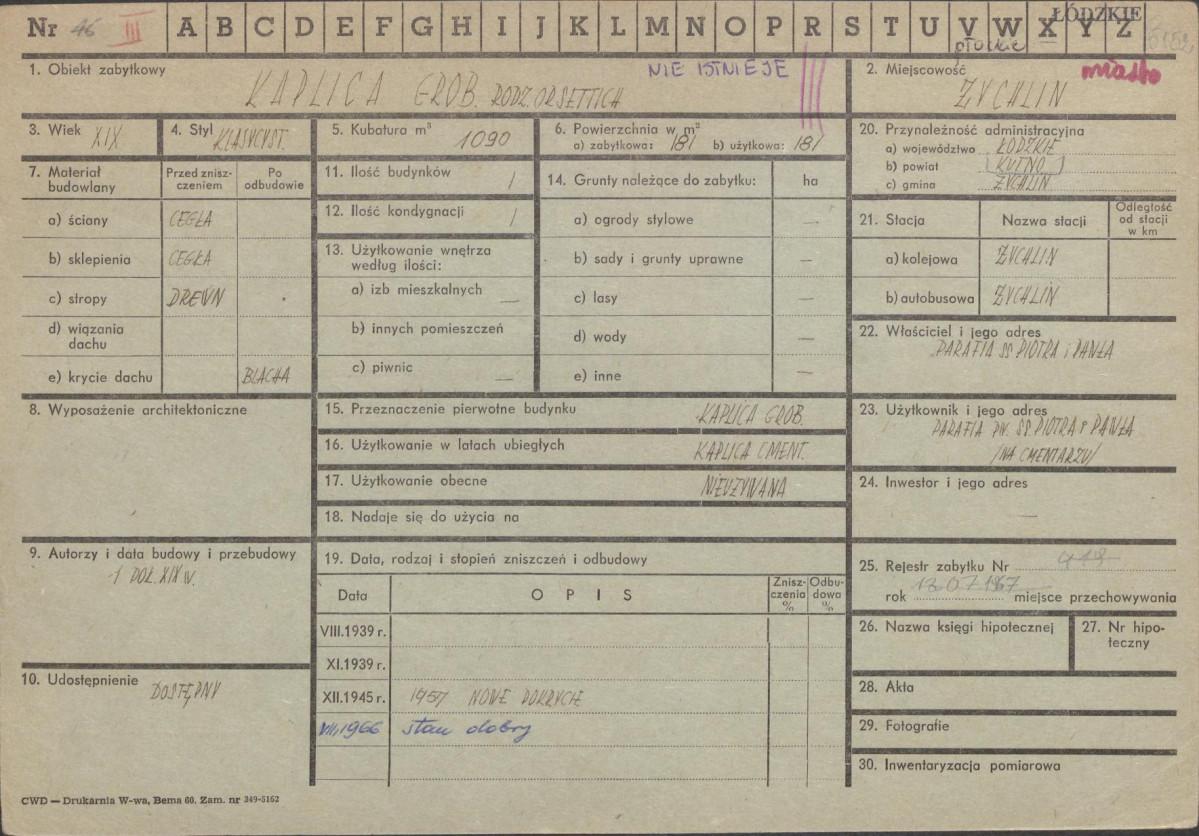 Nr 46 III A B C D E F G H I J K L M N O P R S T U V W X Y Z
ŁÓDZKIE
płockie
1. Obiekt zabytkowy
NIE ISTNIEJE
KAPLICA GROB. RODZ. ORSETTICH
2. Miejscowość
miasto
ŻYCHLIN
3. Wiek XIX
4. Styl KLASYCYST.
5. Kubatura m³ 1090
6. Powierzchnia w m²
a) zabytkowa: 181 b) użytkowa: 181
20. Przynależność administracyjna
a) województwo ŁÓDZKIE
b) powiat KUTNO
c) gmina ŻYCHLIN
7. Materiał budowlany
Przed znisz-
czeniem
Po
odbudowie
a) ściany CEGŁA
b) sklepienia CEGŁA
c) stropy DREWN
d) wiązania
dachu
e) krycie dachu BLACHA
11. Ilość budynków 1
12. Ilość kondygnacji 1
13. Użytkowanie wnętrza
według ilości:
a) izb mieszkalnych —
b) innych pomieszczeń
c) piwnic —
14. Grunty należące do zabytku: ha
a) ogrody stylowe —
b) sady i grunty uprawne —
c) lasy —
d) wody —
e) inne —
21. Stacja
Nazwa stacji
Odległość
od stacji
w km
a) kolejowa ŻYCHLIN
b) autobusowa ŻYCHLIN
22. Właściciel i jego adres
PARAFIA SS PIOTRA i PAWŁA
8. Wyposażenie architektoniczne
15. Przeznaczenie pierwotne budynku KAPLICA GROB.
16. Użytkowanie w latach ubiegłych KAPLICA CMENT.
17. Użytkowanie obecne NIEUŻYWANA
18. Nadaje się do użycia na
23. Użytkownik i jego adres
PARAFIA PW. SS. PIOTRA i PAWŁA
/NA CMENTARZU/
24. Inwestor i jego adres
—
9. Autorzy i data budowy i przebudowy
1 POŁ. XIX w.
19. Data, rodzaj i stopień zniszczeń i odbudowy
Data
O P I S
Znisz-
czenia
%
Odbu-
dowa
%
VIII.1939 r.
XI.1939 r.
XII.1945 r. 1957 NOWE POKRYCIE
VIII.1966 stan dobry
25. Rejestr zabytku Nr 419
rok 13.07.1967 miejsce przechowywania
26. Nazwa księgi hipotecznej
27. Nr hipo-
teczny
10. Udostępnienie DOSTĘPNY
28. Akta
29. Fotografie
30. Inwentaryzacja pomiarowa
CWD — Drukarnia W-wa, Bema 60. Zam. nr 349-5162